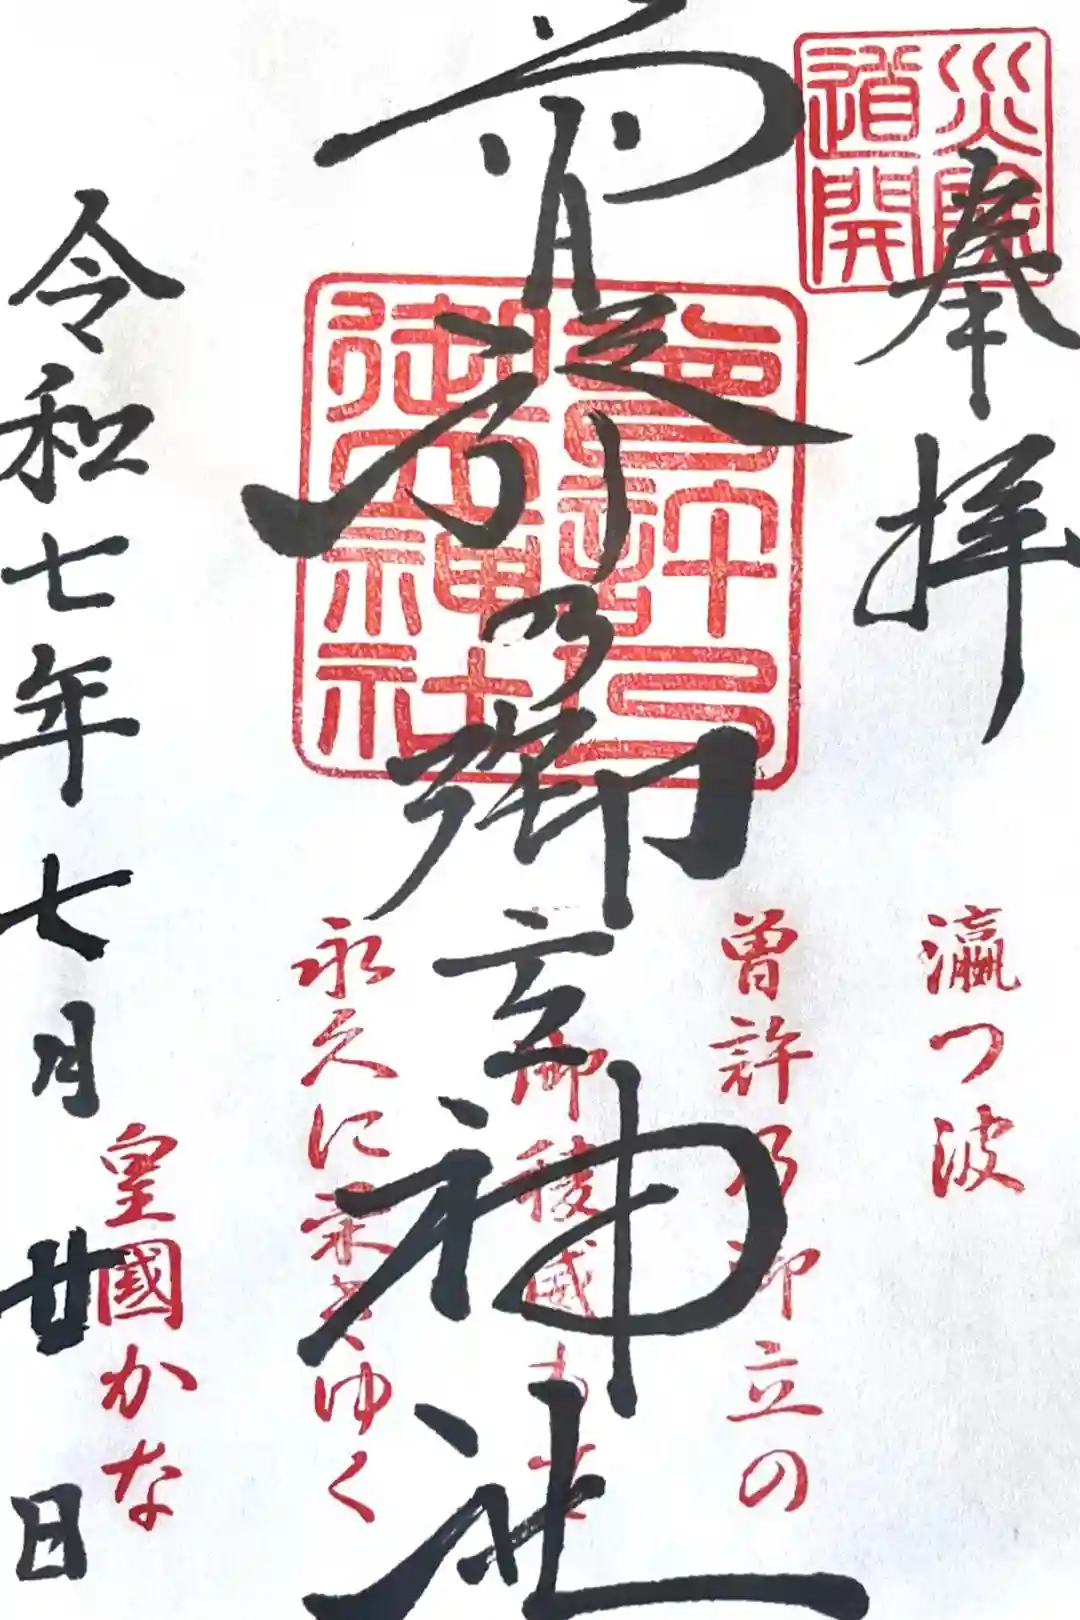 災除
道開
奉拝
曽許乃御立神社
曽許乃
御立神社
瀛つ波
曽許乃御立の
御稜威
永久に栄えゆく
皇國かな
令和七年七月廿日